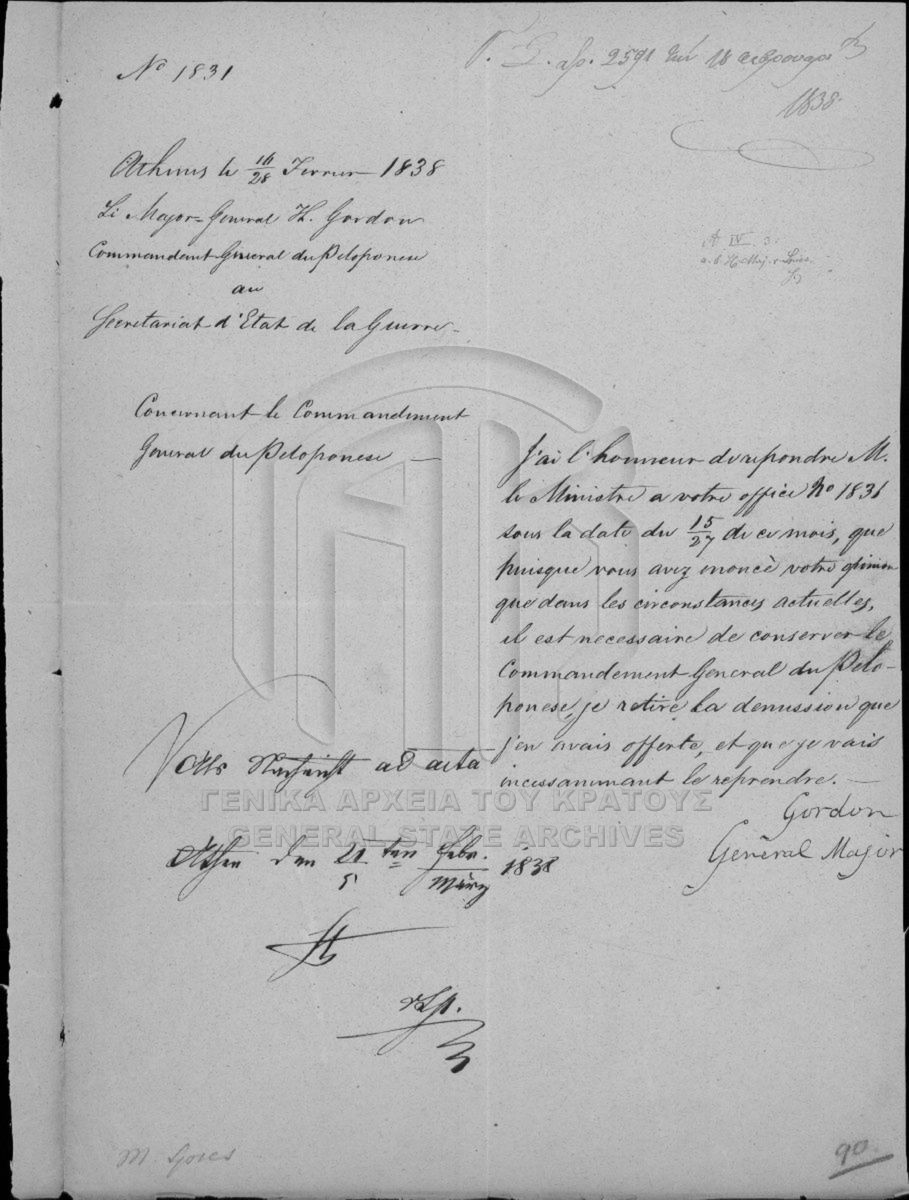 No 1831
2591
18
1838
Athenes le 16/28 Fevrier 1838
Le Major-General Th. Gordon
Commandant General du Peloponese
au
Secretariat d'Etat de la Guerre
Concernant le Commandement
General du Peloponese —
J'ai l'honneur de repondre M.
le Ministre a votre office No 1831
sous la date du 15/27 de ce mois, que
puisque vous avez enoncè votre opinion
que dans les circonstances actuelles,
il est necessaire de conserver le
Commandement General du Pelo-
ponese, je retire la demission que
j'en avais offerte, et que je vais
incessammant le reprendre. —
Gordon
Genèral Major
Als Nachricht ad acta
ΓΕΝΙΚΑ ΑΡΧΕΙΑ ΤΟΥ ΚΡΑΤΟΥΣ
GENERAL STATE ARCHIVES
Athen den 21/5 ten Febr./März 1838
90